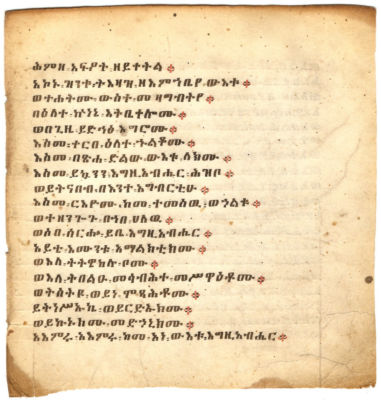 ሕምዘ፡ አፍዖት፡ ዘይቀትል
አኮኑ፡ ዝንቱ፡ ትእዛዝ፡ ዘእምኀቤየ፡ ውእቱ
ወተሐትመ፡ ውስተ፡ መዛግብትየ
በዕለተ፡ ኵነኔ፡ እትቤቀሎሙ
ወበጊዜ፡ ይድኅፅ፡ እግሮሙ
እስመ፡ ቀርበ፡ ዕለተ፡ ኀልቆሙ
እስመ፡ በጽሐ፡ ድልው፡ ውእቱ፡ ለክሙ
እስመ፡ ይኴንን፡ እግዚአብሔር፡ ሕዝቦ
ወይትናበብ፡ በእንተ፡ አግብርቲሁ
እስመ፡ ርእዮሙ፡ ከመ፡ ተመስዉ፡ ወኀልቁ
ወተዘንጉጉ፡ በኀበ፡ ሀለዉ
ወሶበ፡ ሰርሑ፡ ይቤ፡ እግዚአብሔር
አይቴ፡ እሙንቱ፡ አማልክቲክሙ
ወእለ፡ ትትዌከሉ፡ ቦሙ
ወእለ፡ ትበልዑ፡ መሳብሕተ፡ መሥዋዕቶሙ
ወትሰትዩ፡ ወይነ፡ ሞጻሕቶሙ
ይትነሥኡኬ፡ ወይርድኡክሙ
ወይኩኑክሙ፡ መድኀኒክሙ
አእምሩ፡ አእምሩ፡ ከመ፡ አነ፡ ውእቱ፡ እግዚአብሔር